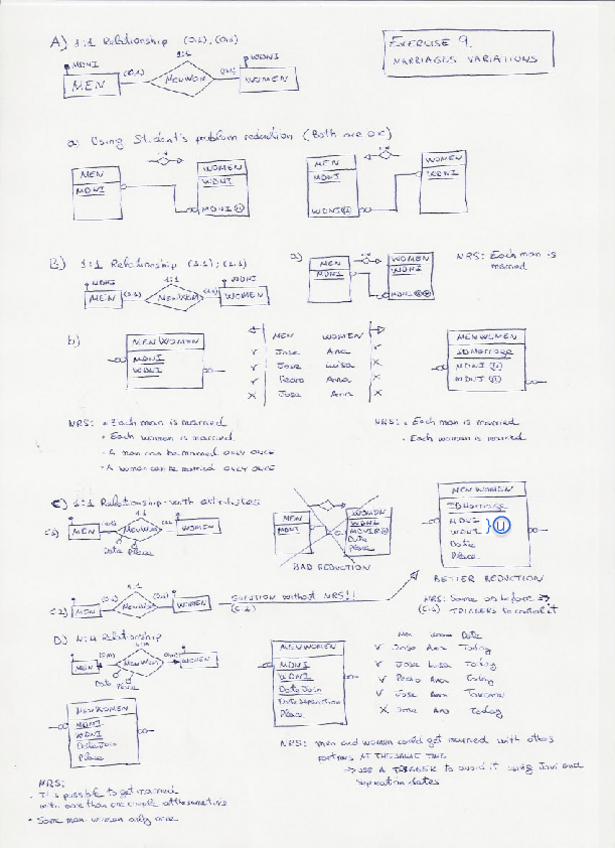 A) 1:1 Relationship (0,1), (0,1)
EXERCISE 9.
MARRIAGES VARIATIONS
MDNI
1:1
WDNI
MEN
(0,1)
MENWOM
(0,1)
WOMEN
a) Using Student's problem reduction (Both are OK)
MEN
MDNI
WOMEN
WDNI
MDNI
MEN
MDNI
WDNI
WOMEN
WDNI
B) 1:1 Relationship (1,1); (1,1)
MEN
(1,1)
1:1
MENWOM
(1,1)
WOMEN
a)
MEN
MDNI
WOMEN
WDNI
MDNI
NRS: Each man is
married
b)
MENWOMEN
MDNI
WDNI
MEN WOMEN
✓ Jose Ana ✓
✓ Jose Luisa X
✓ Pedro Anna X
X Jose Ana X
MENWOMEN
IDMarriage
MDNI (U)
MDNI (U)
NRS: • Each man is married
• Each woman is married
• A man can be married only once
• A woman can be married only once
NRS: • Each man is married
• Each woman is married
C) 1:1 Relationship with attributes
C1)
MEN
1:1
MENWOM
WOMEN
Date Place
MEN
MDNI
WOMEN
WDNI
Date
Place
BAD REDUCTION
MENWOMEN
IDMarriage
MDNI
WDNI
} U
Date
Place
BETTER REDUCTION
C2)
MEN
(0,1)
1:1
MENWOM
(0,1)
WOMEN
SOLUTION without NRS!!
NRS: Same as before =>
TRIGGERS to control it
D) N:M Relationship
MEN
MENWOM
WOMEN
Date Place
MENWOMEN
MDNI
WDNI
DateJoin
DateSeparation
Place
Men Women Date
✓ Jose Ana Today
✓ Jose Luisa Today
✓ Pedro Ana Today
✓ Jose Ana Tomorrow
X Jose Ana Today
MENWOMEN
MDNI
WDNI
DateJoin
Place
NRS: Men and women could get married with others
partners AT THE SAME TIME
=> USE A TRIGGER to avoid it using Join and
separation dates
NRS:
• It's possible to get married
with more than one couple at the same time
• Same man-woman only once